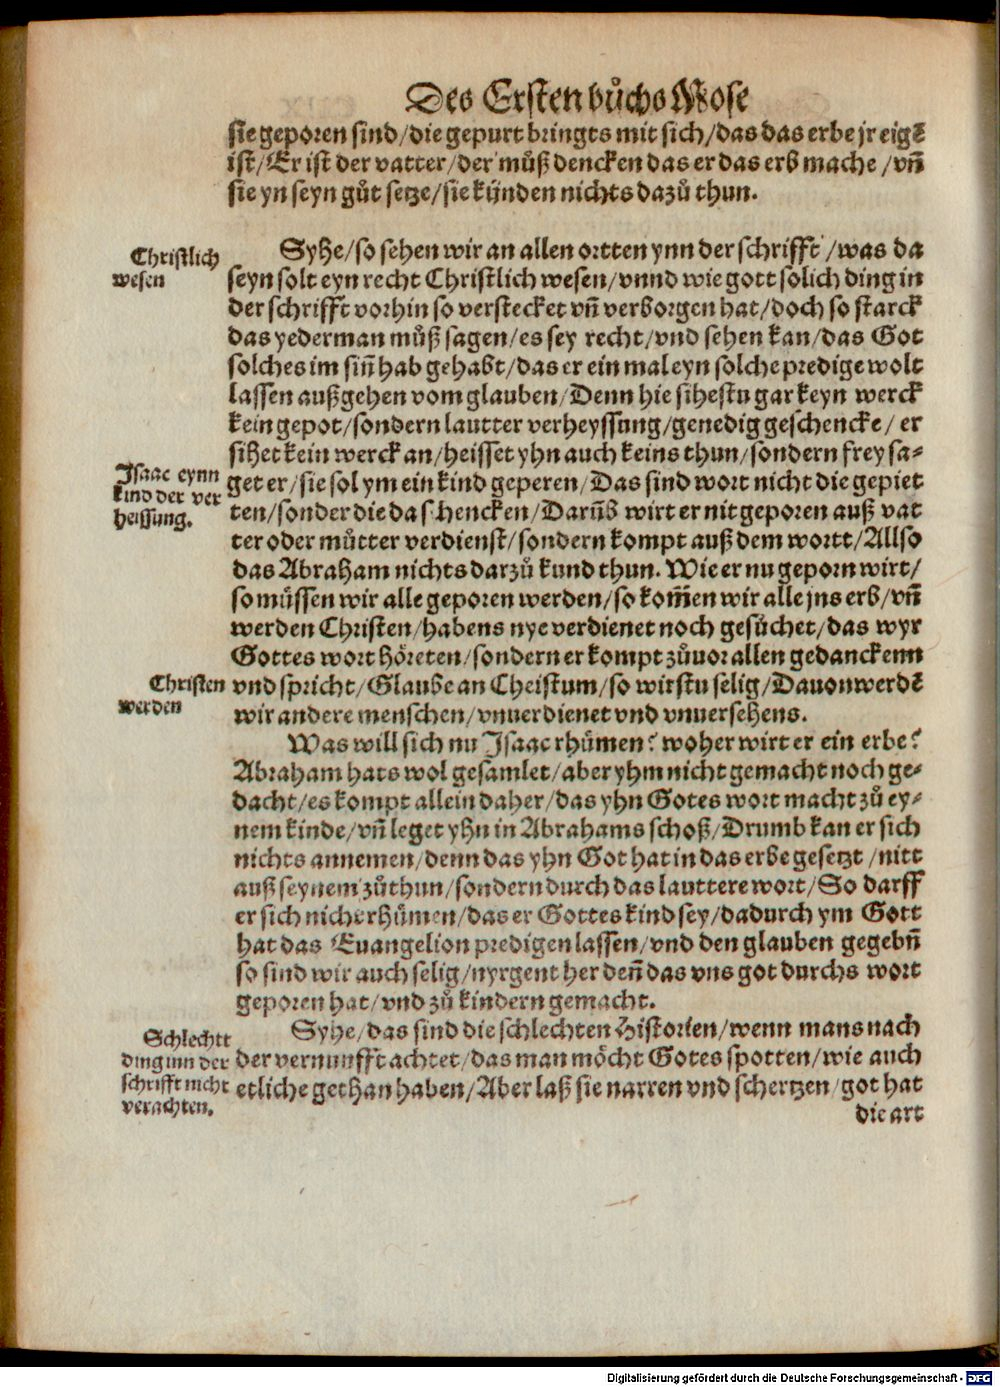 Des Ersten bůchs Mose
sie geporen sind/die gepurt bringts mit sich/das das erbe jr eigẽ
ist/Er ist der vatter/der můß dencken das er das erb mache/vñ
sie yn seyn gůt setze/sie kijnden nichts dazů thun.
Christlich
wesen
Syhe/so sehen wir an allen ortten ynn der schrifft/was da
seyn solt eyn recht Christlich wesen/vnnd wie gott solich ding in
der schrifft vorhin so verstecket vñ verborgen hat/doch so starck
das yederman můß sagen/es sey recht/vnd sehen kan/das Got
solches im siñ hab gehabt/das er ein mal eyn solche predige wolt
lassen außgehen vom glauben/Denn hie sihestu gar keyn werck
kein gepot/sondern lautter verheyssung/genedig geschencke/er
sihet kein werck an/heisset yhn auch keins thun/sondern frey sa⸗
Isaac eynn
kind der ver
heissung.
get er/sie sol ym ein kind geperen/Das sind wort nicht die gepiet
ten/sonder die da schencken/Darũb wirt er nit geporen auß vat
ter oder můtter verdienst/sondern kompt auß dem wortt/Allso
das Abraham nichts darzů kund thun. Wie er nu geporn wirt/
so müssen wir alle geporen werden/so kom̃en wir alle jns erb/vñ
werden Christen/habens nye verdienet noch gesůchet/das wyr
Gottes wort höreten/sondern er kompt zůuor allen gedanckenn
Christen
werden
vnd spricht/Glaube an Cheistum/so wirstu selig/Dauon werdẽ
wir andere menschen/vnuerdienet vnd vnuersehens.
Was will sich nu Isaac rhůmen? woher wirt er ein erbe?
Abraham hats wol gesamlet/aber yhm nicht gemacht noch ge⸗
dacht/es kompt allein daher/das yhn Gotes wort macht zů ey⸗
nem kinde/vñ leget yhn in Abrahams schoß/Drumb kan er sich
nichts annemen/denn das yhn Got hat in das erbe gesetzt/nitt
auß seynem zůthun/sondern durch das lauttere wort/So darff
er sich nicht rhümen/das er Gottes kind sey/dadurch ym Gott
hat das Euangelion predigen lassen/vnd den glauben gegebñ
so sind wir auch selig/nyrgent her deñ das vns got durchs wort
geporen hat/vnd zů kindern gemacht.
Schlechtt
ding inn der
schrifft nicht
verachten.
Syhe/das sind die schlechten Historien/wenn mans nach
der vernunfft achtet/das man möcht Gotes spotten/wie auch
etliche gethan haben/Aber laß sie narren vnd schertzen/got hat
die art
Digitalisierung gefördert durch die Deutsche Forschungsgemeinschaft - DFG